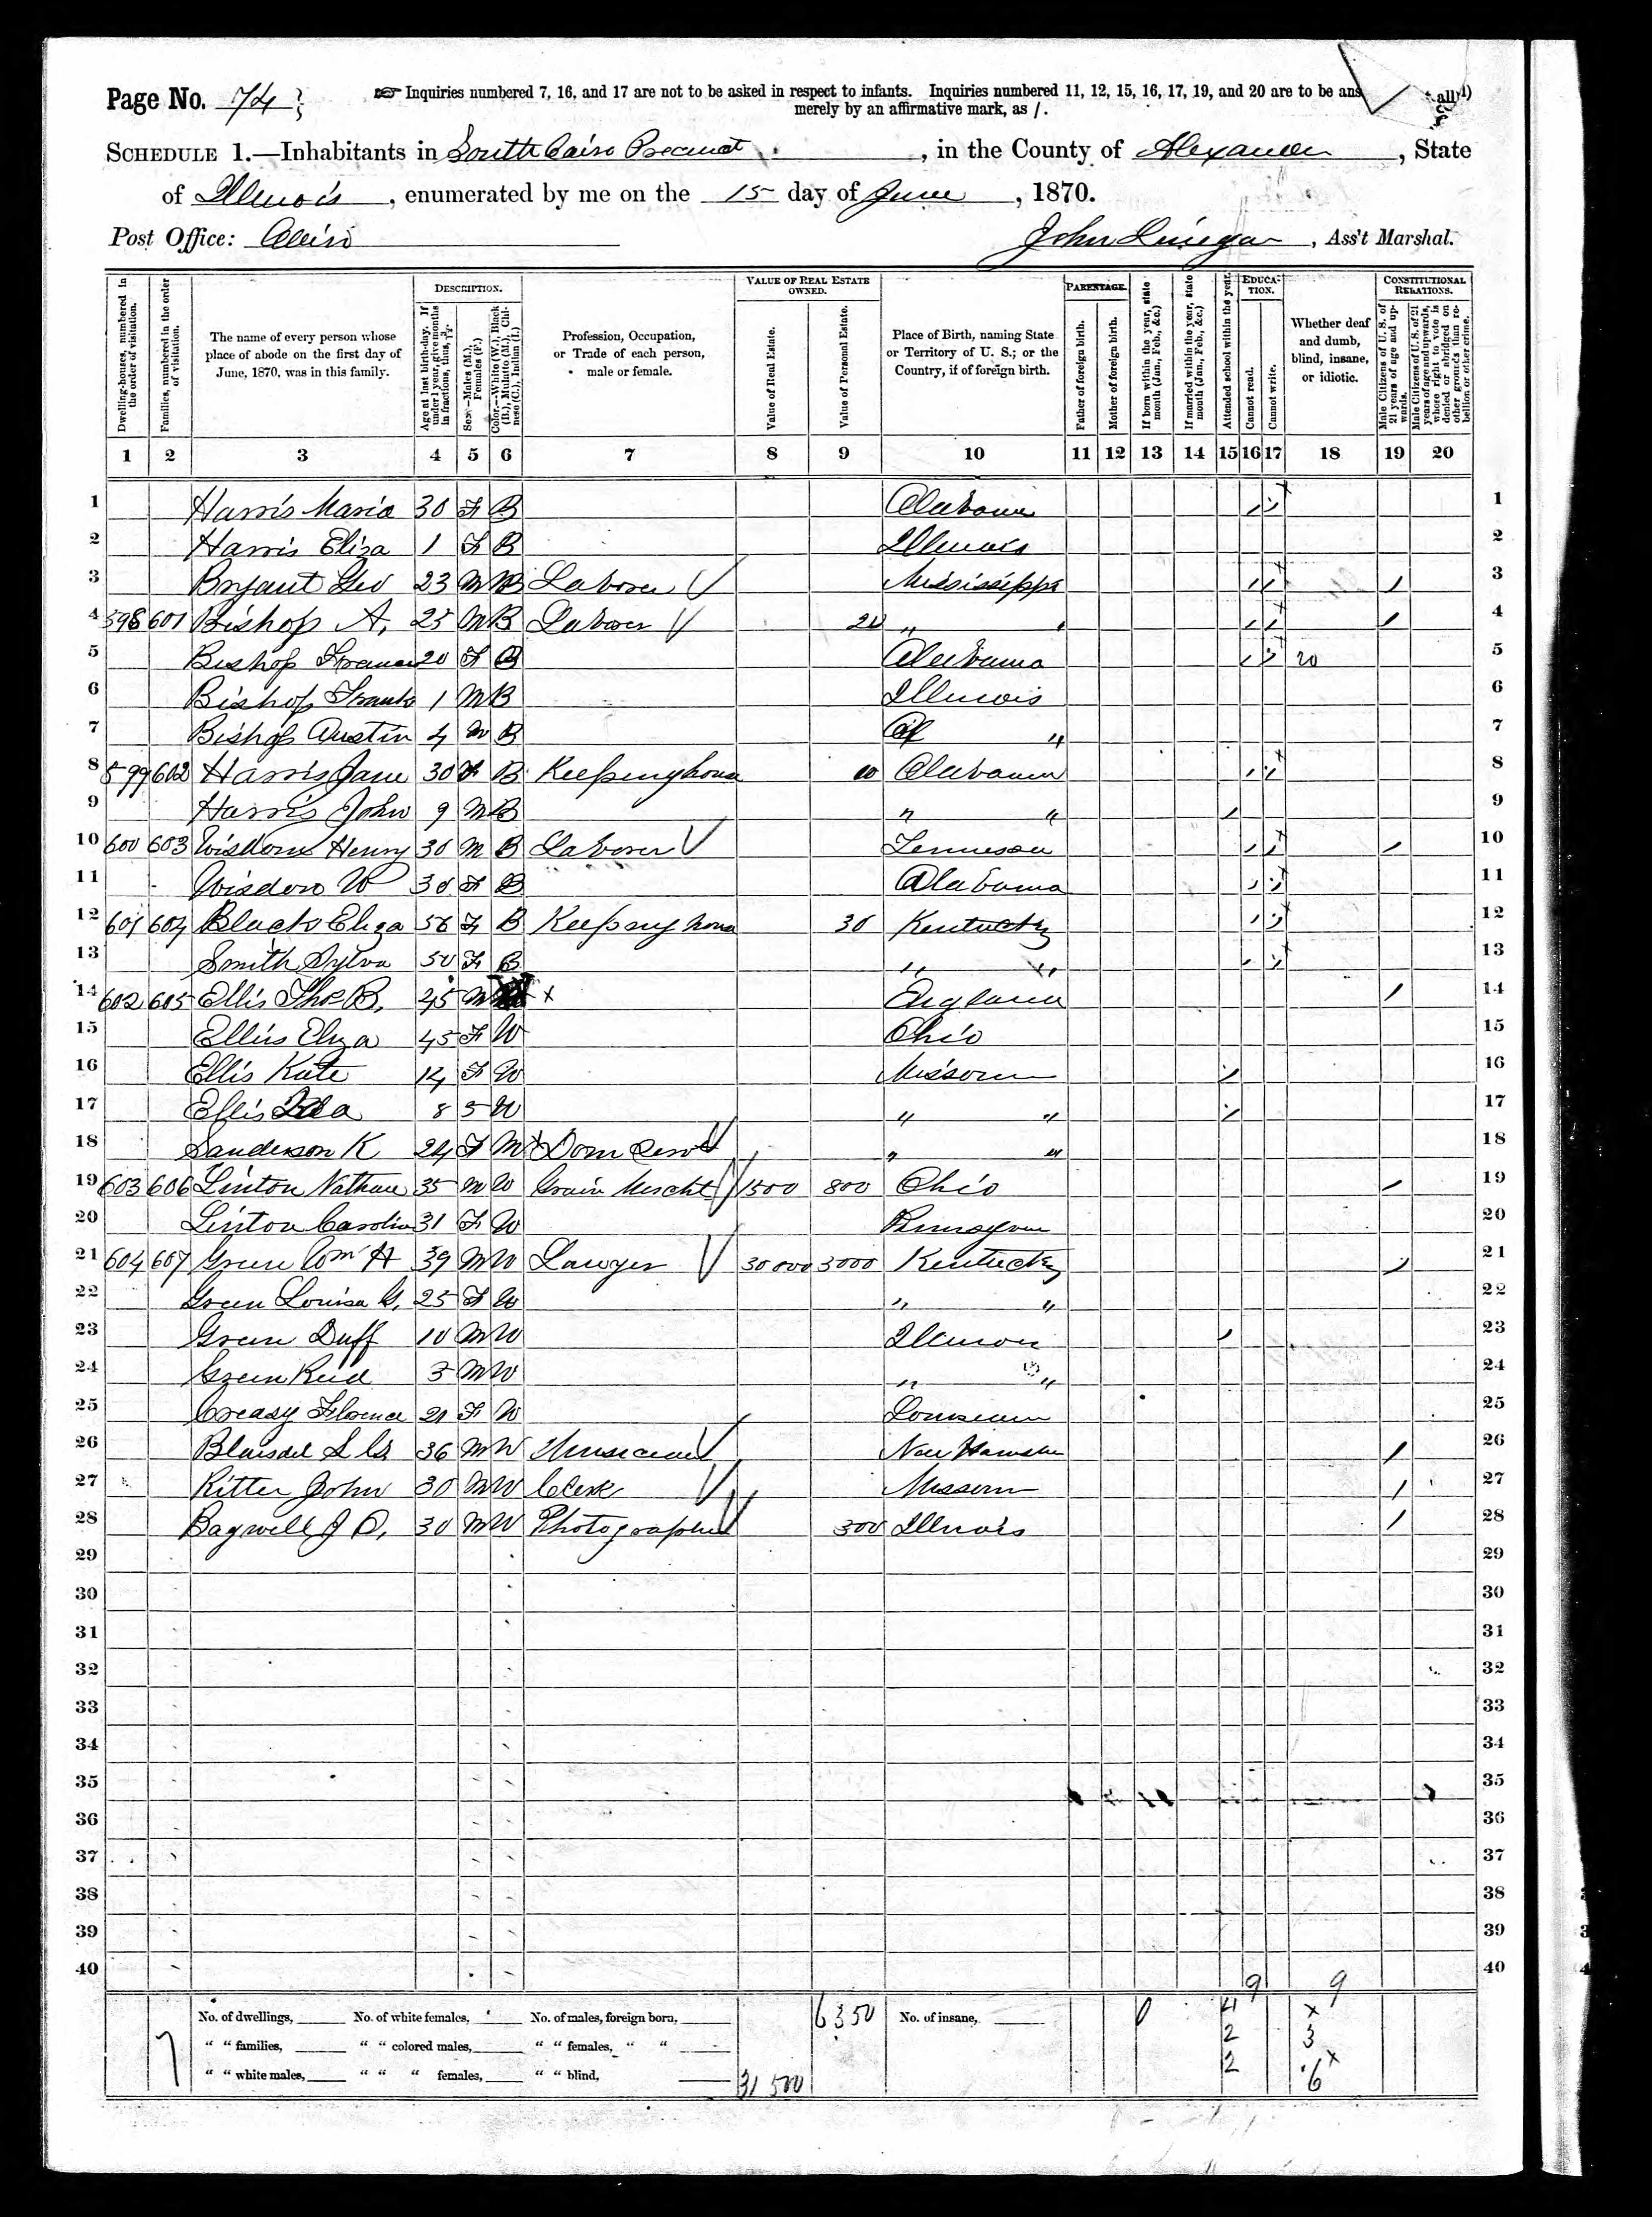 Page No. 74
☞ Inquiries numbered 7, 16, and 17 are not to be asked in respect to infants. Inquiries numbered 11, 12, 15, 16, 17, 19, and 20 are to be ans
merely by an affirmative mark, as /.
SCHEDULE 1.—Inhabitants in South Cairo Precinct, in the County of Alexander, State
of Illinois, enumerated by me on the 15 day of June, 1870.
Post Office: Cairo John, Ass't Marshal.
Dwelling-houses, numbered in the order of visitation.
Families, numbered in the order of visitation.
The name of every person whose place of abode on the first day of June, 1870, was in this family.
DESCRIPTION.
Age at last birth-day. If under 1 year, give months in fractions, thus, 3/12.
Sex.—Males (M.), Females (F.)
Color.—White (W.), Black (B.), Mulatto (M.), Chinese (C.), Indian (I.)
Profession, Occupation, or Trade of each person, male or female.
VALUE OF REAL ESTATE OWNED.
Value of Real Estate.
Value of Personal Estate.
Place of Birth, naming State or Territory of U. S.; or the Country, if of foreign birth.
PARENTAGE.
Father of foreign birth.
Mother of foreign birth.
If born within the year, state month (Jan., Feb., &c.)
If married within the year, state month (Jan., Feb., &c.)
Attended school within the year.
EDUCATION.
Cannot read.
Cannot write.
Whether deaf and dumb, blind, insane, or idiotic.
CONSTITUTIONAL RELATIONS.
Male Citizens of U. S. of 21 years of age and upwards.
Male Citizens of U. S. of 21 years of age and upwards, whose right to vote is denied or abridged on other grounds than rebellion or other crime.
1 2 3 4 5 6 7 8 9 10 11 12 13 14 15 16 17 18 19 20
1 Harris Maria 30 F B Alabama / / 1
2 Harris Eliza 1 F B Illinois 2
3 Bryant Geo 23 M B Laborer Mississippi / / / 3
4 598 601 Bishop A. 25 M B Laborer 20 " / / / 4
5 Bishop Frances 20 F B Alabama / / 20 5
6 Bishop Frank 1 M B Illinois 6
7 Bishop Austin 4 M B " 7
8 599 602 Harris Jane 30 F B Keeping house 10 Alabama / / 8
9 Harris John 9 M B " " / 9
10 600 603 Wisdom Henry 30 M B Laborer Tennessee / / / 10
11 Wisdom W 30 F B Alabama / / 11
12 601 604 Black Eliza 56 F B Keeping house 30 Kentucky / / 12
13 Smith Sylva 50 F B " " / / 13
14 602 605 Ellis Thos B. 45 M x England / 14
15 Ellis Eliza 45 F W Ohio 15
16 Ellis Kate 14 F W Missouri / 16
17 Ellis Ida 8 F W " " / 17
18 Sanderson K 24 F M Dom Servt " " 18
19 603 606 Linton Nathan 35 M W Grain Mercht 1500 800 Ohio / 19
20 Linton Carolin 31 F W 20
21 604 607 Green Wm H 39 M W Lawyer 30000 5000 Kentucky / 21
22 Green Louisa G. 25 F W " " 22
23 Green Duff 10 M W Illinois / 23
24 Green Reed 5 M W " " 24
25 Creasy Florence 21 F W Louisiana 25
26 Blaisdel 36 M W Musician New Hamshe / 26
27 Ritter John 30 M W Clerk Missouri / 27
28 Bagwell J O. 30 M W Photographer 300 Illinois / 28
29 29
30 30
31 31
32 32
33 33
34 34
35 35
36 36
37 37
38 38
39 39
40 9 9 40
No. of dwellings, No. of white females, No. of males, foreign born, 6350 No. of insane, 4 x
" " families, " " colored males, " " females, " " 2 3
7 " " white males, " " " females, " " blind, 31500 2 6 x